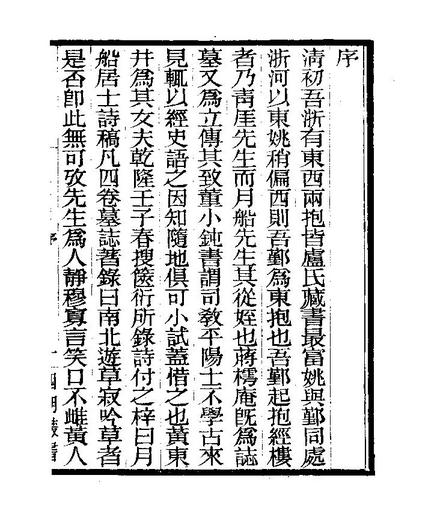 序
清初吾浙有東西兩抱皆盧氏藏書最富姚與鄞同處
浙河以東姚稍偏西則吾鄞為東抱也吾鄞起抱經樓
者乃靑厓先生而月船先生其從姪也蔣樗庵旣為誌
墓又為立傳其致董小鈍書謂司敎平陽士不學古來
見輒以經史語之因知隨地俱可小試蓋惜之也黃東
井為其女夫乾隆壬子春搜篋衍所錄詩付之梓曰月
船居士詩稿凡四卷墓誌著錄曰南北遊草寂吟草者
是否卽此無可攷先生為人靜穆寡言笑口不雌黃人
序
四明叢書